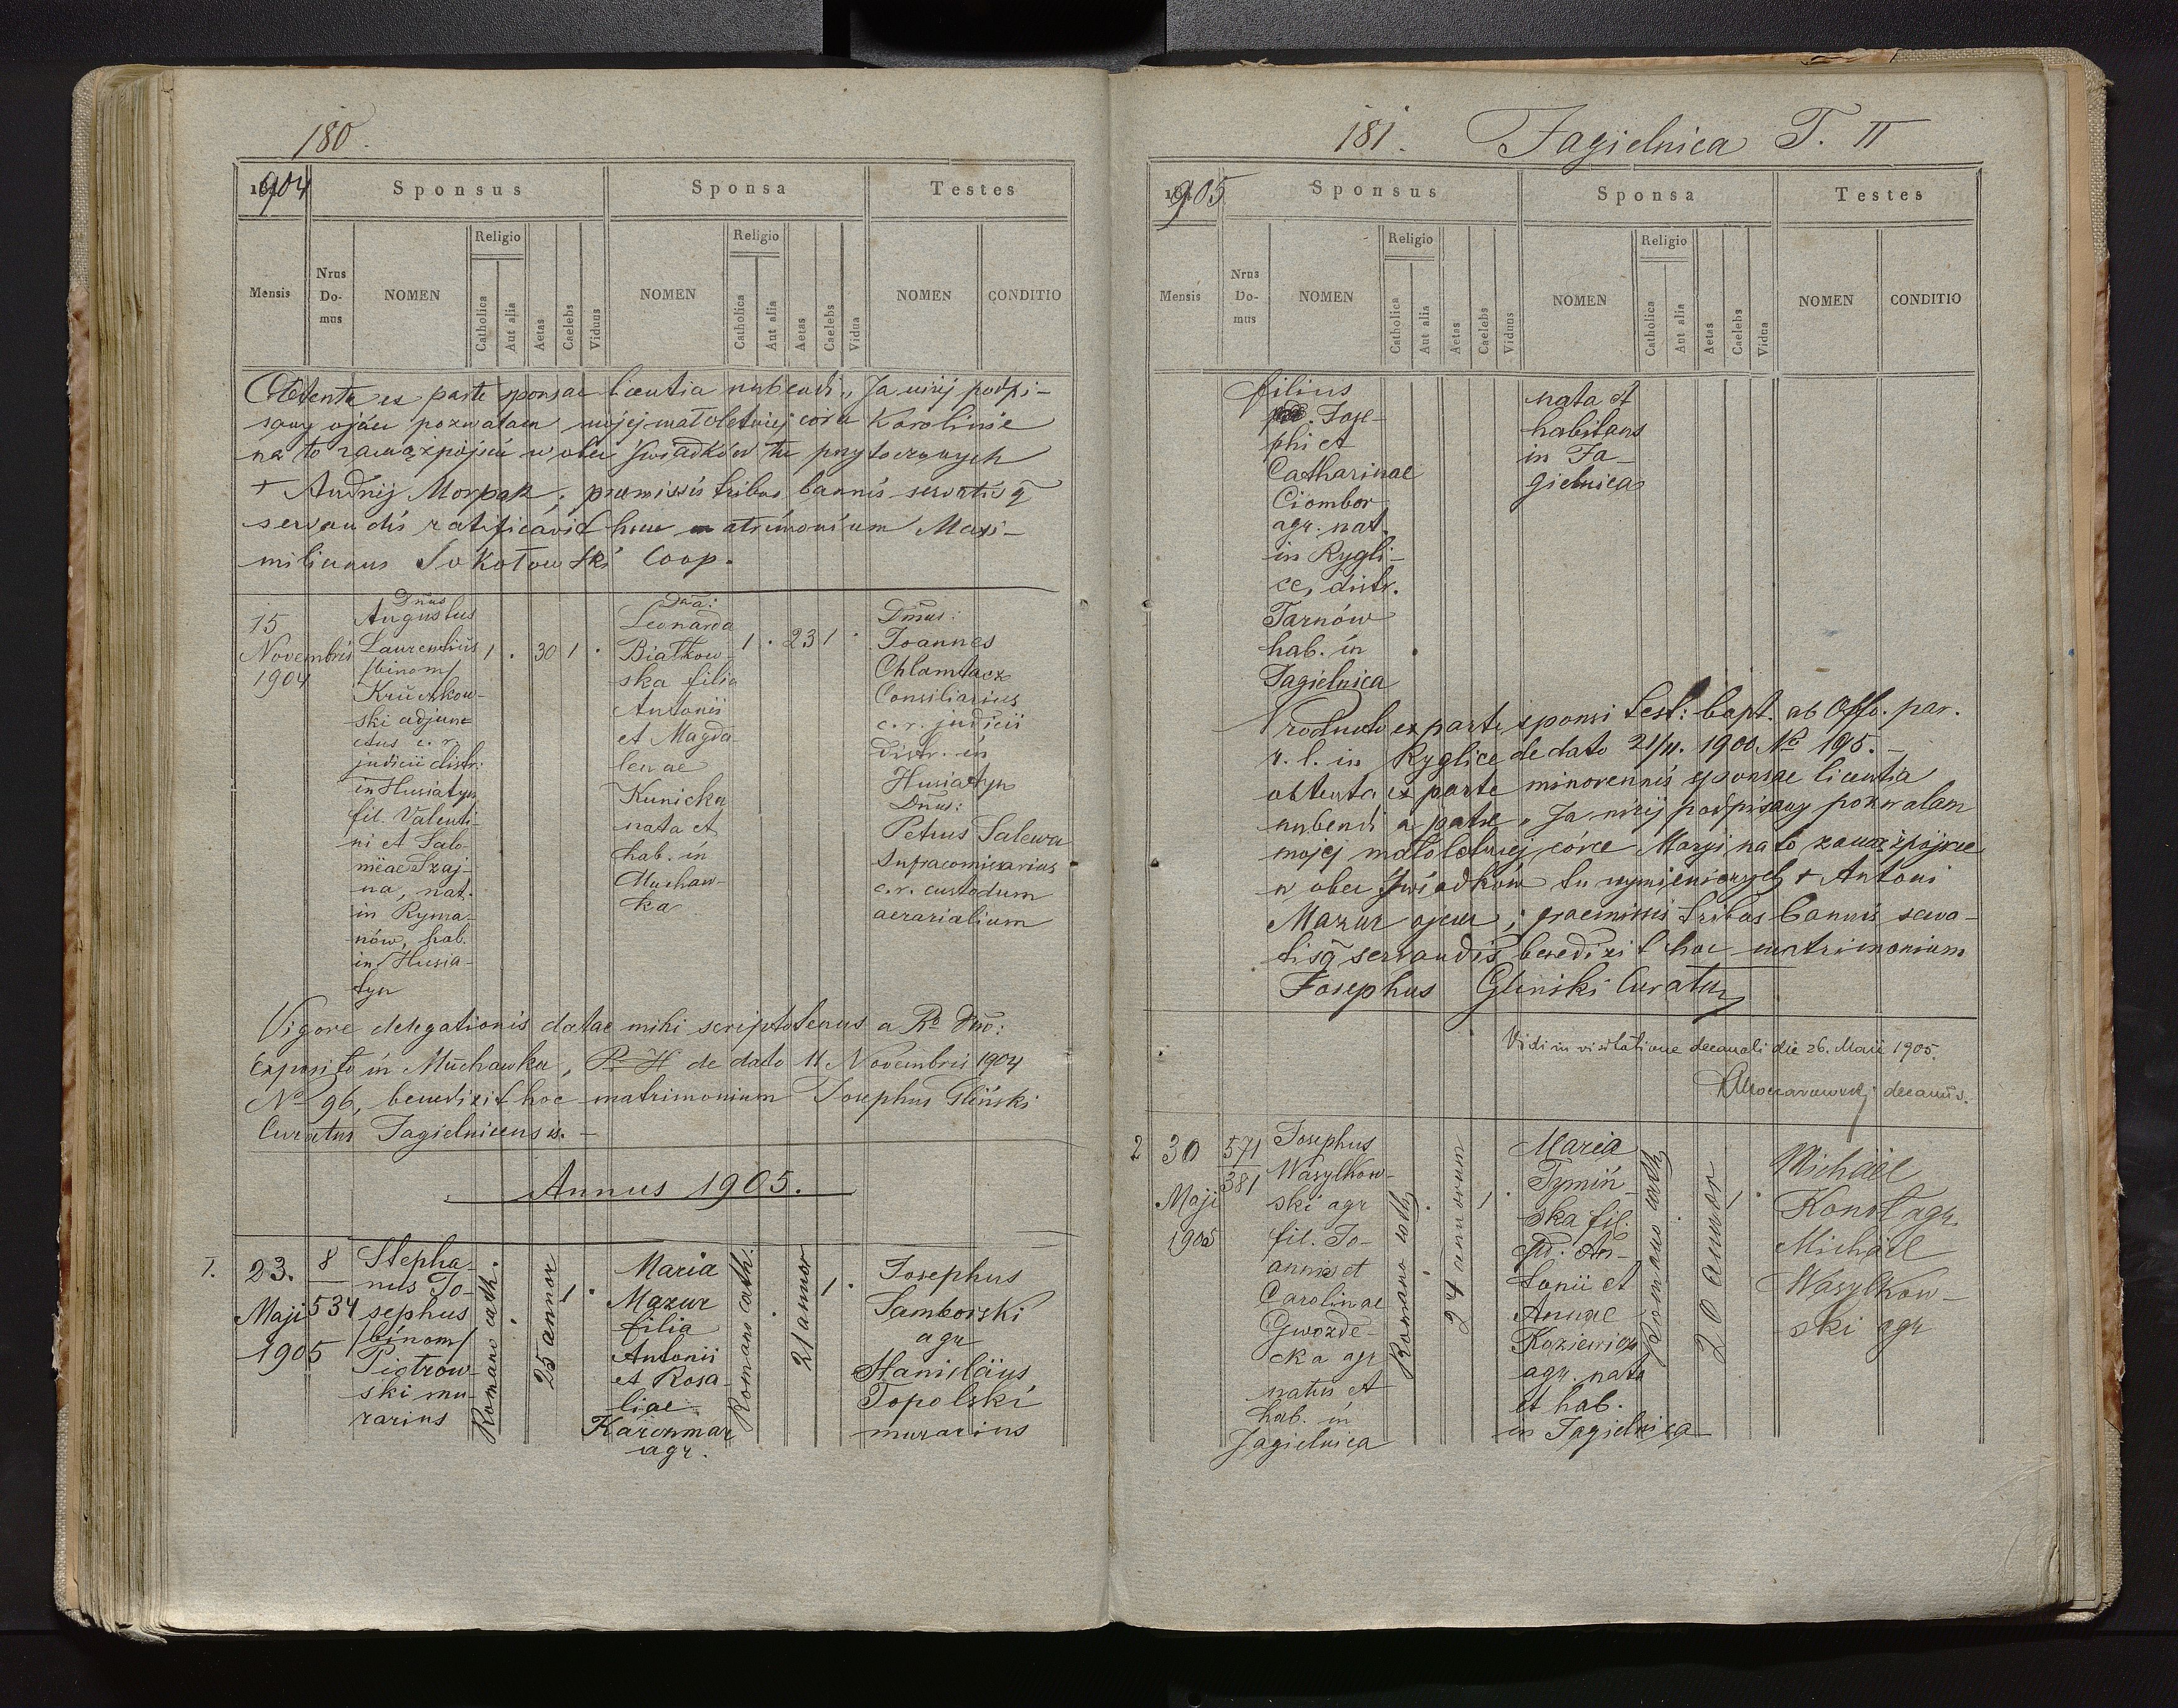 180.
1904
Sponsus
Sponsa
Testes
Mensis
Nrus Domus
NOMEN
Religio
Catholica
Aut alia
Aetas
Caelebs
Viduus
NOMEN
Religio
Catholica
Aut alia
Aetas
Caelebs
Vidua
NOMEN
CONDITIO
Obtenta ex parte sponsae licentia nubendi „Ja niżej podpi-
sany ojciec pozwalam mojej małoletniej córce Karolinie
na to zamążpójście w obec świadków tu przytoczonych
+ Andrij Morpak, praemissis tribus bannis servatis q
servandis ratificavit hoc matrimonium Maxi-
milianus Sokołowski Coop.
15
Novembris
1904
Dnus
Augustus
Laurentius
/binom/
Kruczkow-
ski adjun-
ctus c. r.
judicii distr.
in Husiatyn
fil. Valenti-
ni et Salo-
meae Szaj-
na, nat.
in Ryma-
nów, hab.
in Husia-
tyn
1 . 30 1 .
Dna:
Leonarda
Białkow-
ska filia
Antonii
et Magda-
lenae
Kunicka
nata et
hab. in
Muchaw-
ka
1 . 23 1 .
Dnus:
Joannes
Chlamtacz
Consiliarius
c. r. judicii
distr. in
Husiatyn
Dnus:
Petrus Salewa
Supracomissarius
c. r. custodum
aerarialium
Vigore delegationis datae mihi scriptotenus a Rd Dno:
Exposito in Muchawka, de dato 11. Novembris 1904
No 96, benedixit hoc matrimonium Josephus Gliński
Curatus Jagielnicensis. –
Annus 1905.
1.
23.
Maji
1905
8
534
Stepha-
nus Jo-
sephus
/binom/
Piotrow-
ski mu-
rarius
Romano cath.
.
25 annor
1 .
Maria
Mazur
filia
Antonii
et Rosa-
liae
Karczmar
agr.
Romano cath.
.
21 annor
1 .
Josephus
Samborski
agr
Stanislaus
Topolski
murarius
181. Jagielnica T. II
1905
Sponsus
Sponsa
Testes
Mensis
Nrus Domus
NOMEN
Religio
Catholica
Aut alia
Aetas
Caelebs
Viduus
NOMEN
Religio
Catholica
Aut alia
Aetas
Caelebs
Vidua
NOMEN
CONDITIO
filius
Jose-
phi et
Catharinae
Ciombor
agr. nat.
in Rygli-
ce, distr.
Tarnów
hab. in
Jagielnica
nata et
habitans
in Ja-
gielnica
Producto ex parte sponsi test: bapt. ab Offo. par.
r. l. in Ryglice de dato 21/11. 1900 No 195. –
obtenta ex parte minorennis sponsae licentia
nubendi a patre „Ja niżej podpisany pozwalam
mojej małoletniej córce Maryi na to zamążpójście
w obec świadków tu wymienionych + Antoni
Mazur ojciec; praemissis tribus bannis serva-
tisq servandis benedixit hoc matrimonium
Josephus Gliński Curatus
Vidi in visitatione decanali die 26. Maii 1905.
decanus.
2
30
Maji
1905
571
381
Josephus
Wasylkow-
ski agr
fil. Jo-
annis et
Carolinae
Gwozde-
cka agr
natus et
hab. in
Jagielnica
Romano cath
.
24 annorum
1 .
Maria
Tymiń-
ska fil.
An-
tonii et
Annae
Koziewicz
agr. nata
et hab.
in Jagielnica
Romano cath
.
20 annor
1 .
Michäel
Konot agr.
Michäel
Wasylkow-
ski agr